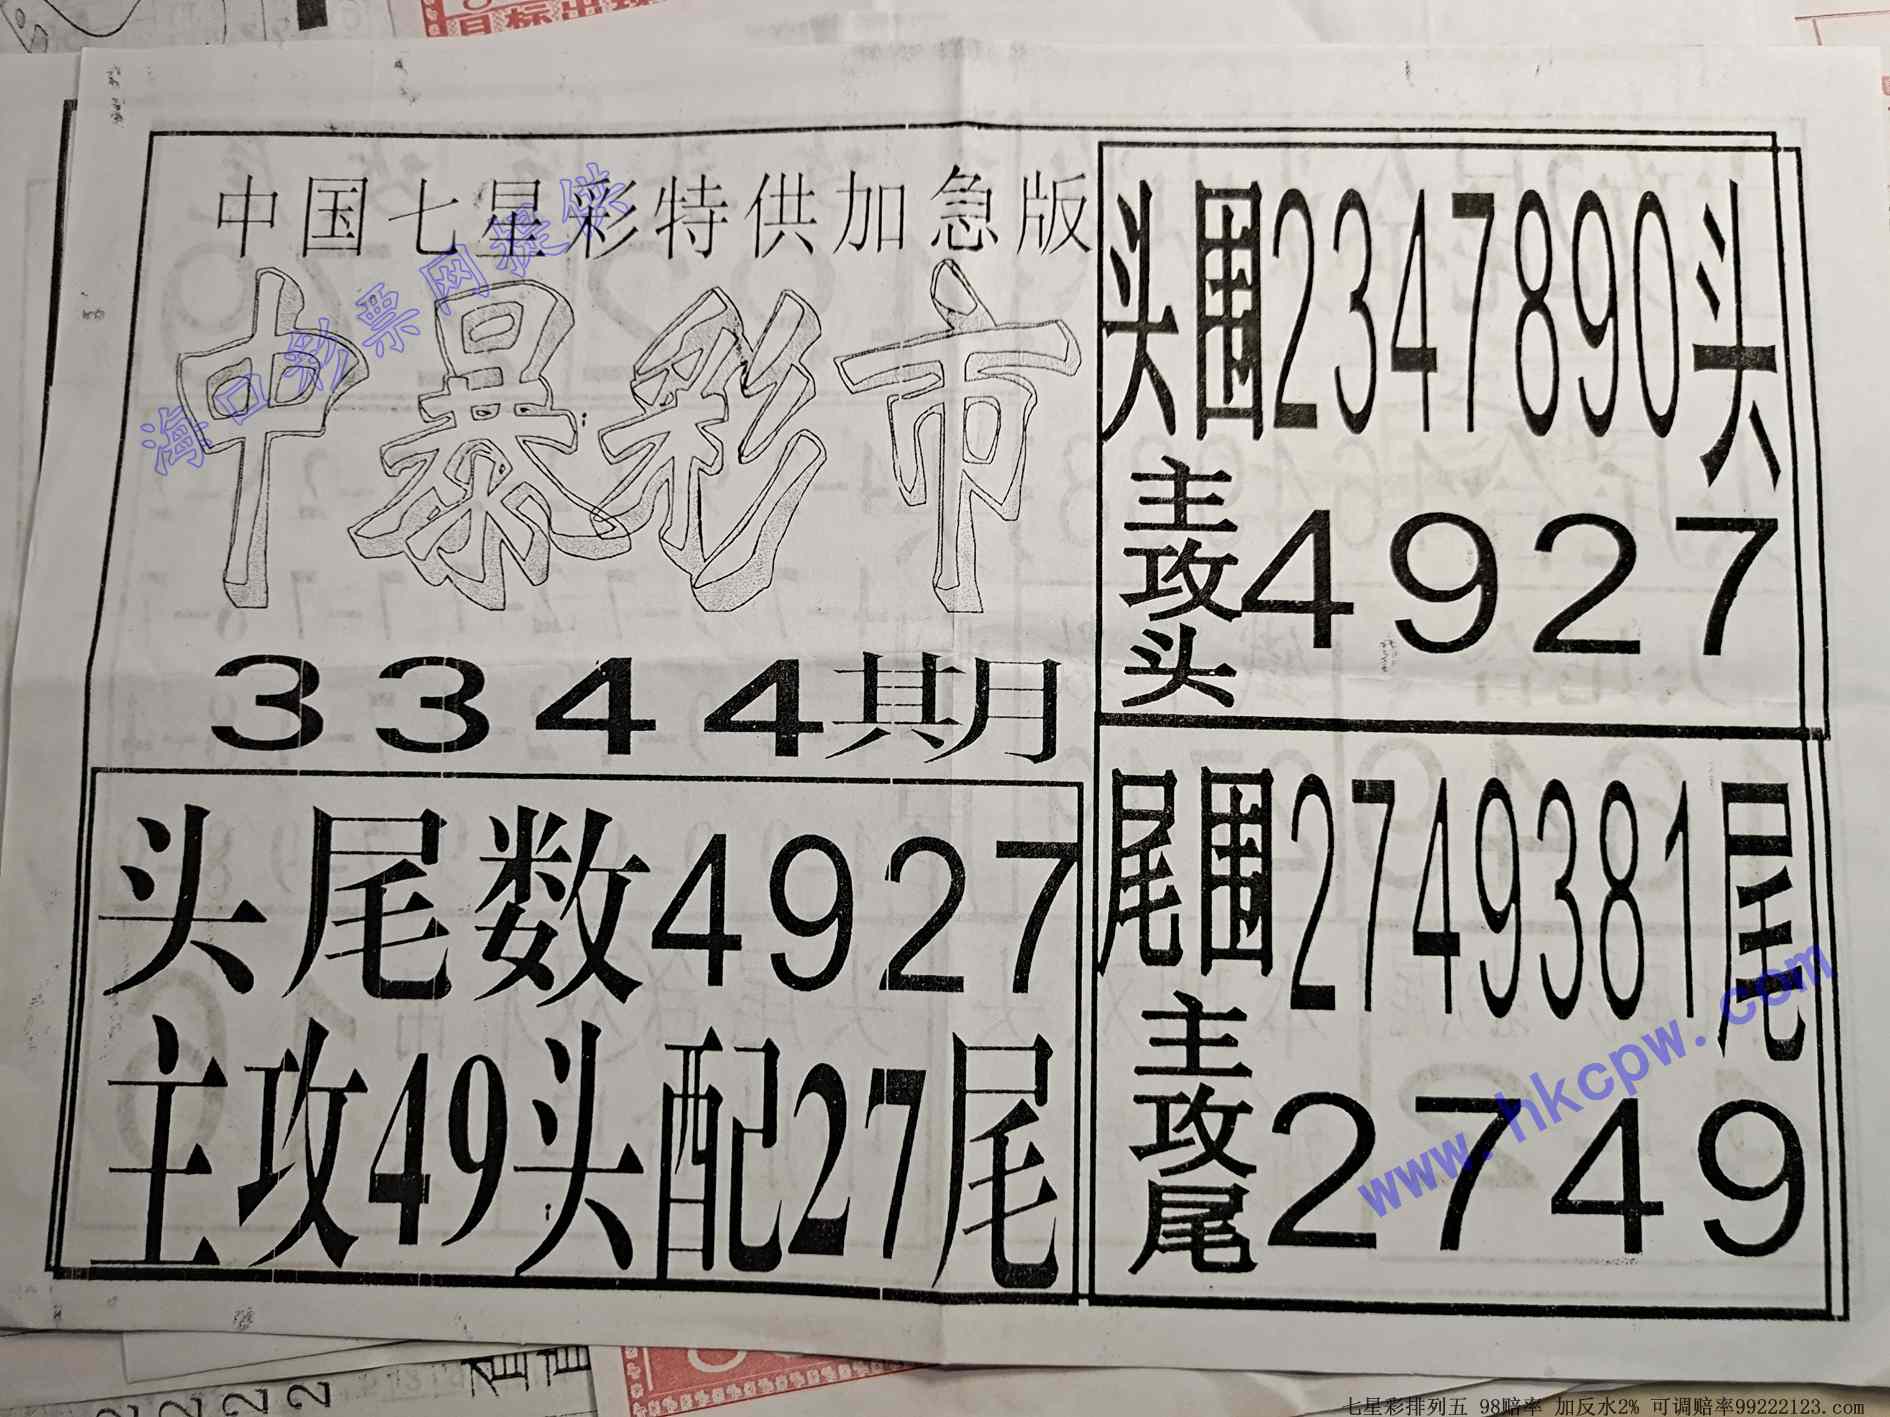 中国七星彩特供加急版
中暴彩市
3344期
头尾数4927
主攻49头配27尾
头围2347890头
主攻头4927
尾围2749381尾
主攻尾2749
海口彩票网提供
www.hkcpw.com
七星彩排列五 98赔率 加反水2% 可调赔率99222123.com